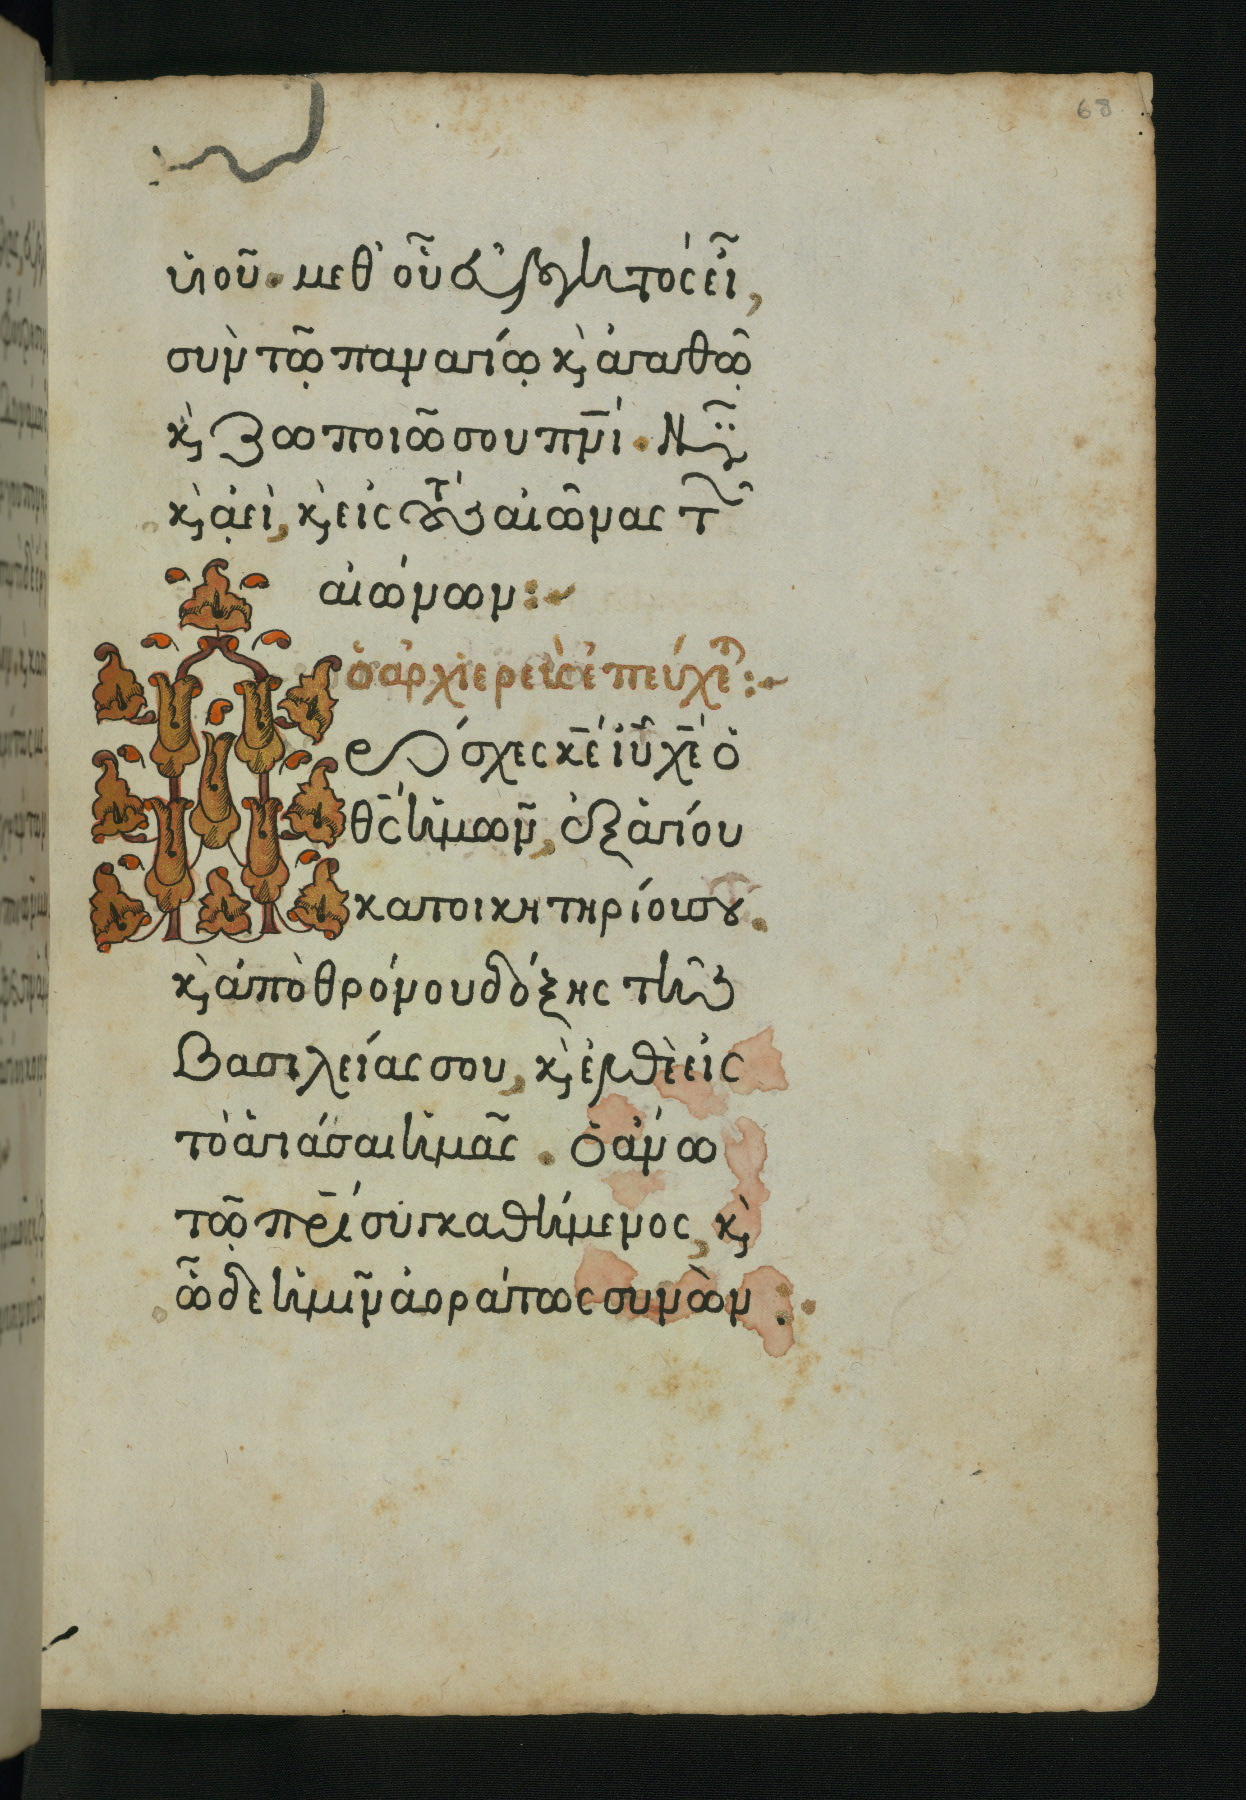 68
υἱοῦ. μεθ' οὗ εὐλογητὸς εἶ,
σὺν τῷ παναγίῳ κ̀ ἀγαθῷ
κ̀ ζωοποιῷ σου πν̅ι. Νῦν
κ̀ ἀεὶ, κ̀ εἰς τοὺς αἰῶνας τ̃
αἰώνων:~
ὁ ἀρχιερεὺς ἐπεύχε̃:~
Πρόσχες κ̅ε ἰ̅υ χ̅ε ὁ
θ̅ς ἡμῶν, ἐξ ἁγίου
κατοικητηρίου σου.
κ̀ ἀπὸ θρόνου δόξης τῆς
βασιλείας σου, κ̀ ἐλθὲ εἰς
τὸ ἁγιάσαι ἡμᾶς. ὁ ἄνω
τῷ π̅ρι συγκαθήμενος, κ̀
ὧδε ἡμῖν ἀοράτως συνὼν.